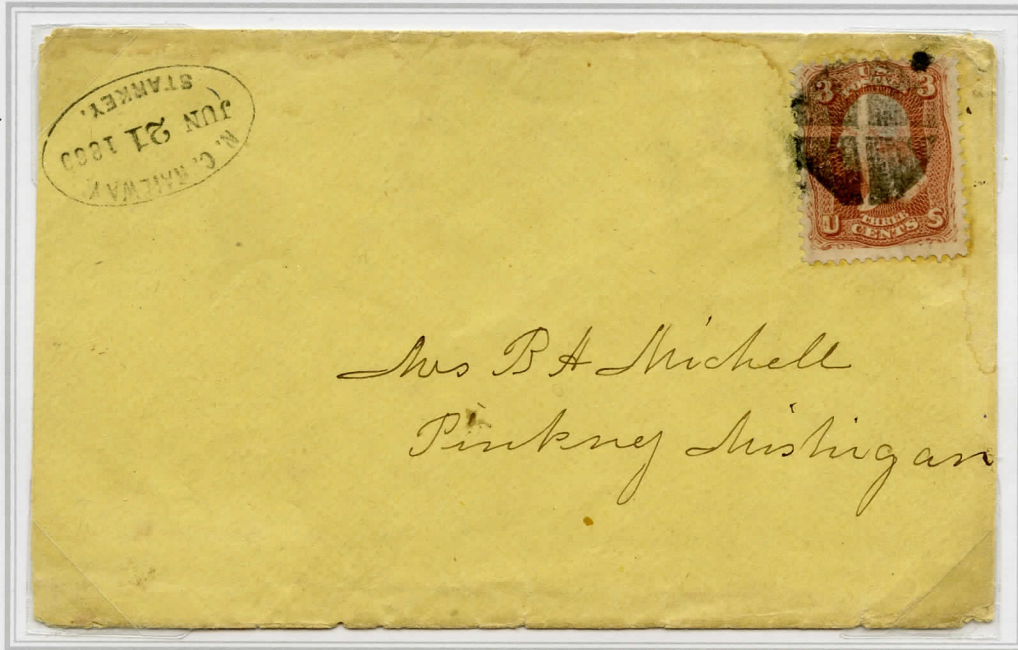 N. C. RAILWAY
JUN 21 186
STARKEY.
3 3
U THREE CENTS S
Mrs B H Michell
Pinkney Mishigan